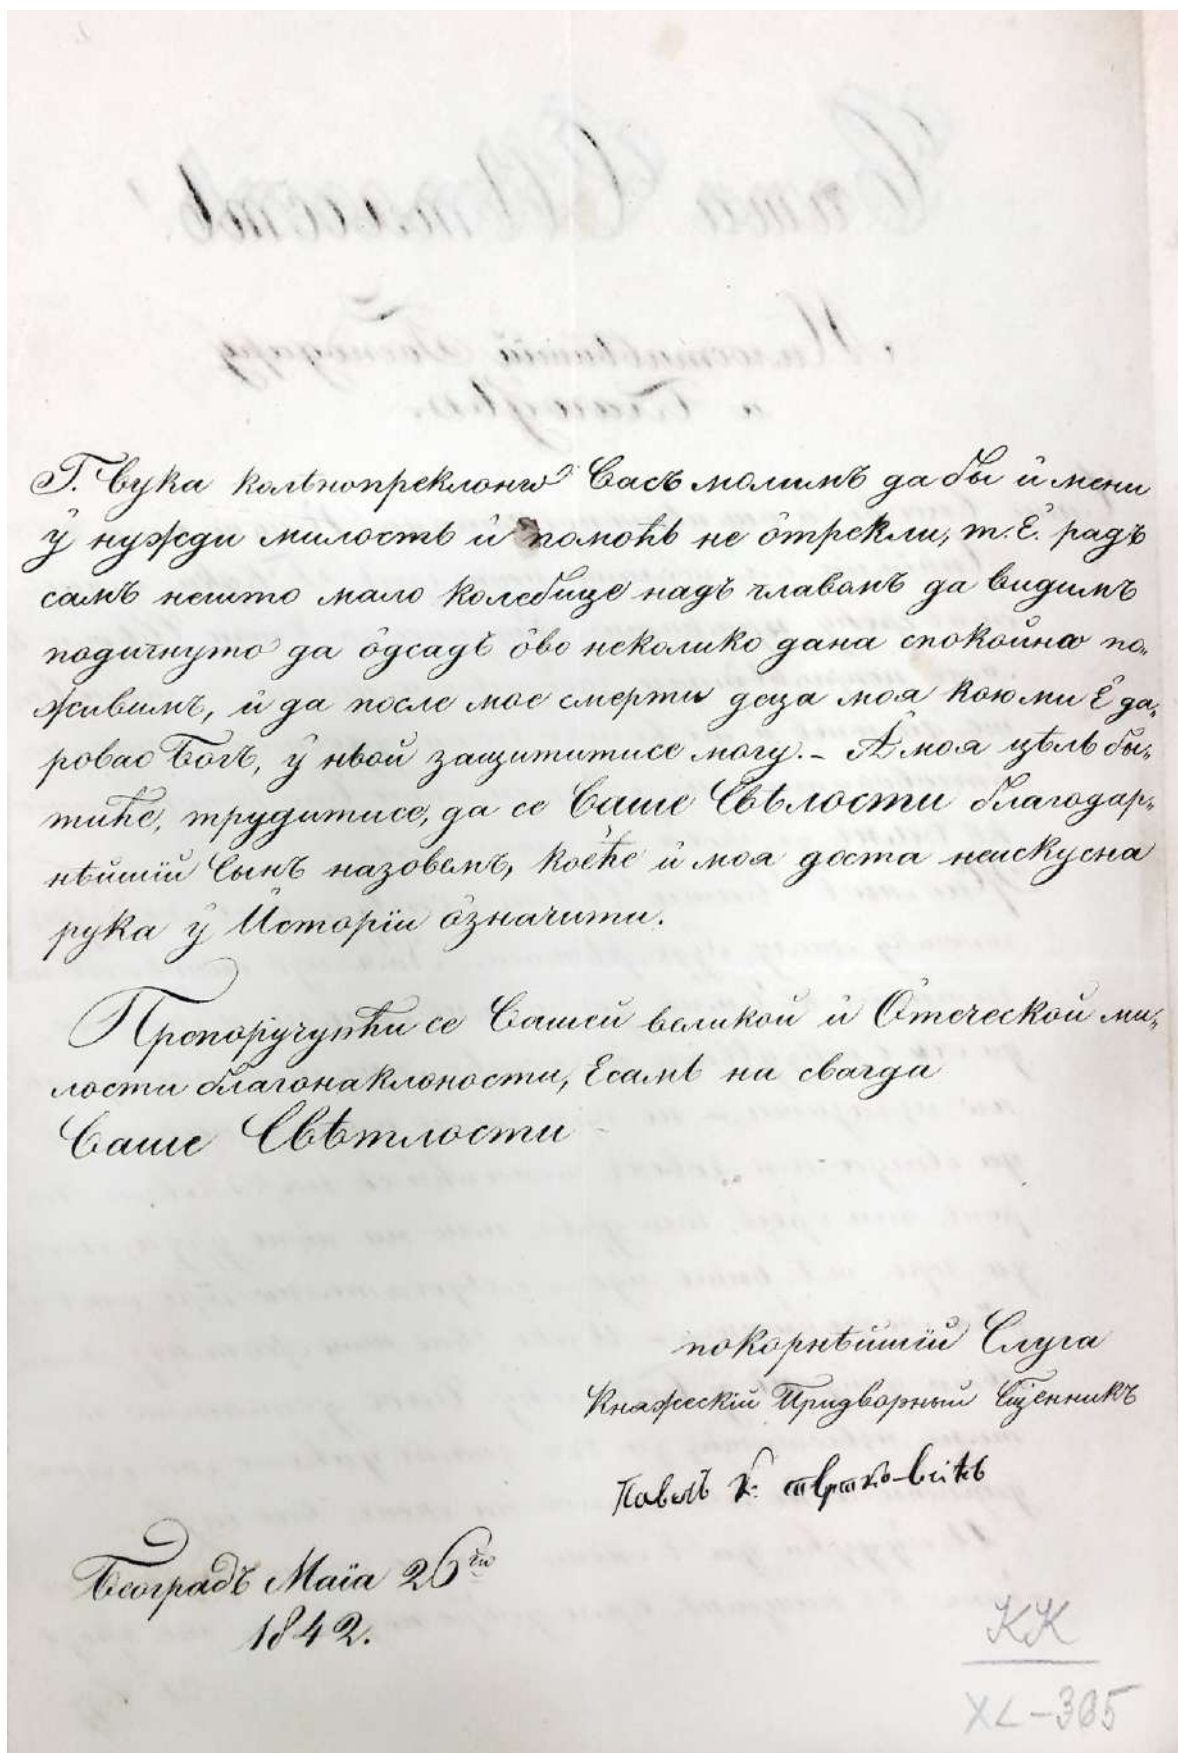 Г. Вука колѣнопреклонѡ Васъ молимъ да бы и мени
ӱ нужди милость и помоћь не ӧтрекли, т. Е. радъ
самъ нешто мало колебице надъ главомъ да видимъ
подигнуто да ӧдсадъ ӧво неколико дана спокойнѡ по„
живимъ, и да после мое смерти деца моя кою ми Е да„
ровао Богъ, ӱ ньой защитити се могу. – А моя цѣль бы„
тиће, трудитисе, да се Ваше Свѣлости благодар„
нѣйшій Сынъ назовемъ, коеће и моя доста неискусна
рука ӱ Исторіи ӧзначити.
Препорӱчуюћи се Вашей великой и Ӧтеческой ми„
лости благонаклоности, Есамь на свагда
Ваше Свѣтлости
покорнѣйшій Слуга
Княжескій Придворный Сщенникъ
Павелъ К.
Београдъ Маїа 26го
1842.
КК
XL–305